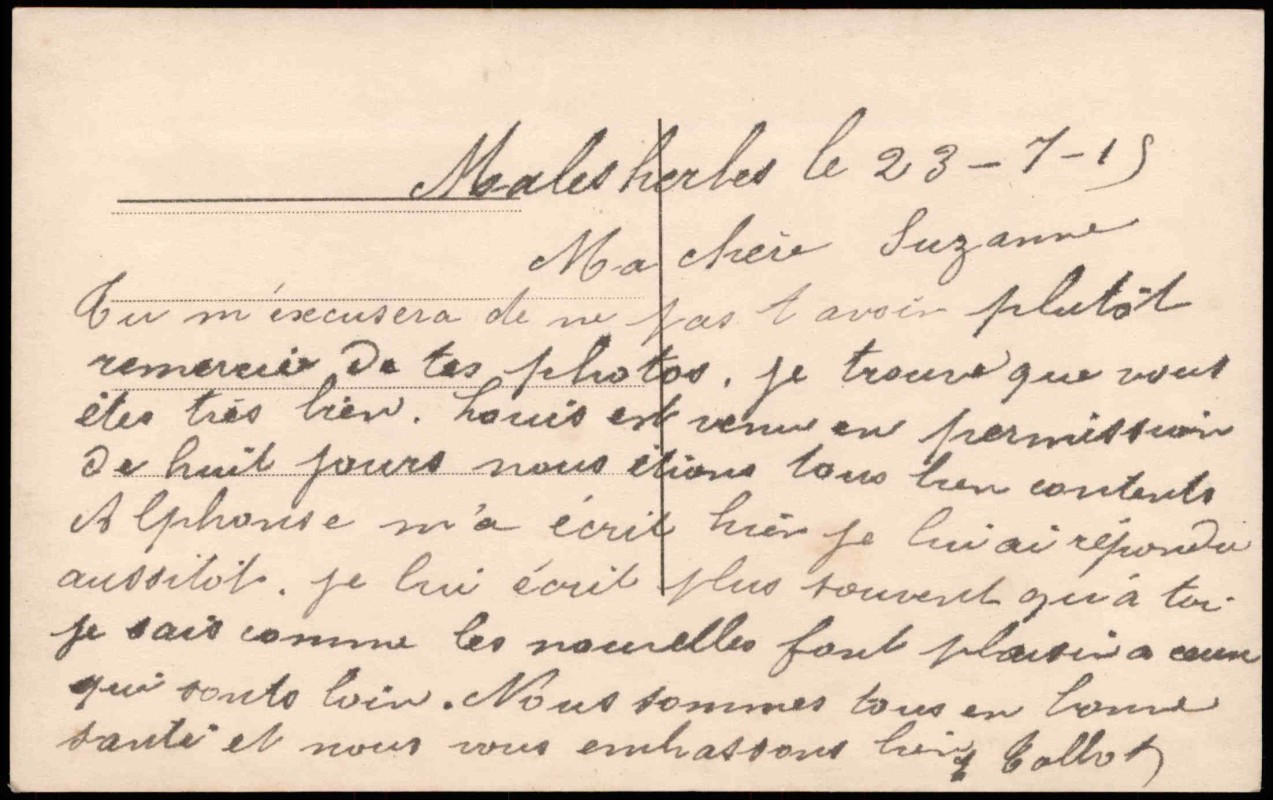 Malesherbes le 23-7-15
Ma chère Suzanne
Tu m'éxcusera de ne pas t avoir plutôt
remercié de tes photos. je trouve que vous
êtes très bien. Louis est venu en permission
de huit jours nous étions tous bien contents
Alphonse m'a écrit hièr je lui ai répondu
aussitôt. je lui écrit plus souvent qu'à toi
je sais comme les nouvelles font plaisir a ceux
qui sonts loin. Nous sommes tous en bonne
santé et nous vous embrassons bien